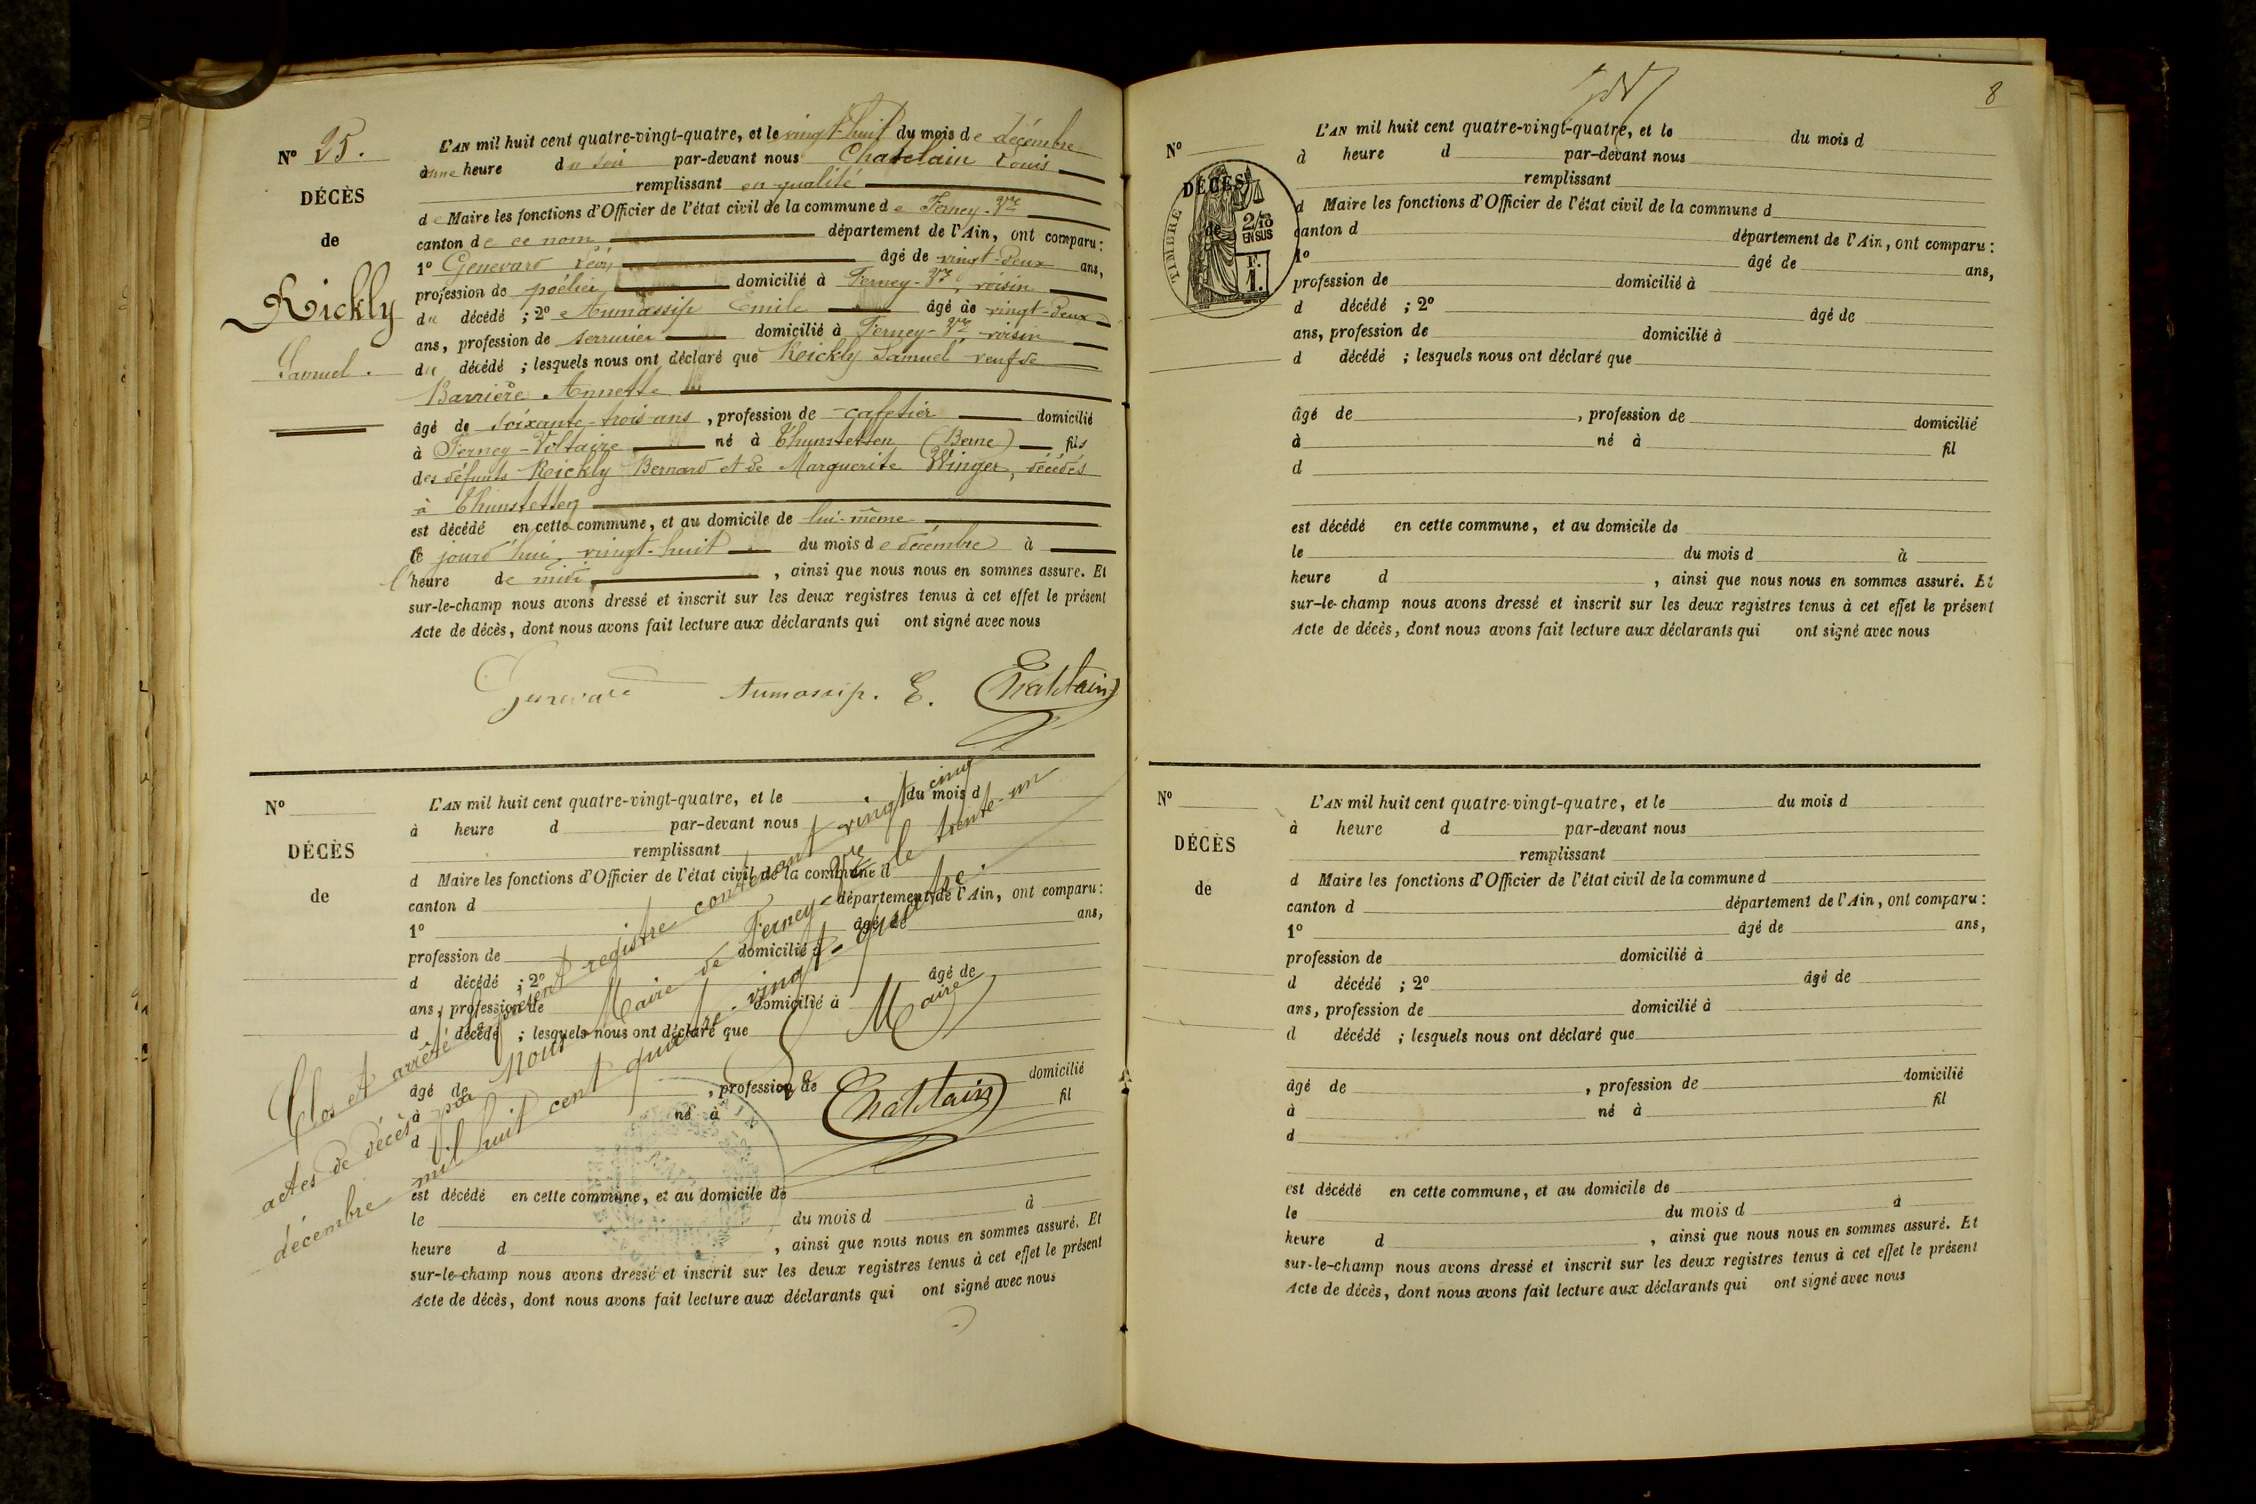 N° 25.
DÉCÈS
de
Rickly
Samuel.
L'AN mil huit cent quatre-vingt-quatre, et le vingt-huit du mois de décembre
à une heure du soir par-devant nous Chatelain Louis
remplissant en qualité
de Maire les fonctions d'Officier de l'état civil de la commune de Ferney-Vre
canton de ce nom département de l'Ain, ont comparu :
1° Genevard Léon âgé de vingt-deux ans,
profession de poêlier domicilié à Ferney-Vre, voisin
du décédé ; 2° Aumassip Emile âgé de vingt-deux
ans, profession de serrurier domicilié à Ferney-Vre voisin
du décédé ; lesquels nous ont déclaré que Reickly Samuel, veuf de
Barrière Annette
âgé de soixante-trois ans, profession de cafetier domicilié
à Ferney-Voltaire né à Thunstetten (Berne) fils
des défunts Reickly Bernard et de Marguerite Winger, décédés
à Thunstetten
est décédé en cette commune, et au domicile de lui-même
ce jourd'hui, vingt-huit du mois de décembre à
l'heure de midi, ainsi que nous nous en sommes assuré. Et
sur-le-champ nous avons dressé et inscrit sur les deux registres tenus à cet effet le présent
Acte de décès, dont nous avons fait lecture aux déclarants qui ont signé avec nous
Genevard Aumassip. E. Chatelain
N°
DÉCÈS
de
L'AN mil huit cent quatre-vingt-quatre, et le du mois d
à heure d par-devant nous
remplissant
d Maire les fonctions d'Officier de l'état civil de la commune d
canton d département de l'Ain, ont comparu :
1° âgé de ans,
profession de domicilié à
d décédé ; 2° âgé de
ans, profession de domicilié à
d décédé ; lesquels nous ont déclaré que
âgé de , profession de domicilié
à né à fil
d
est décédé en cette commune, et au domicile de
le du mois d à
heure d , ainsi que nous nous en sommes assuré. Et
sur-le-champ nous avons dressé et inscrit sur les deux registres tenus à cet effet le présent
Acte de décès, dont nous avons fait lecture aux déclarants qui ont signé avec nous
Clos et arrêté le présent registre contenant vingt cinq
actes de décès par Nous Maire de Ferney-Vre le trente-un
décembre mil huit cent quatre-vingt-quatre.
Le Maire
Chatelain
8
N°
DÉCÈS
de
TIMBRE
2/10
EN SUS
F.
1.
L'AN mil huit cent quatre-vingt-quatre, et le du mois d
à heure d par-devant nous
remplissant
d Maire les fonctions d'Officier de l'état civil de la commune d
canton d département de l'Ain, ont comparu :
1° âgé de ans,
profession de domicilié à
d décédé ; 2° âgé de
ans, profession de domicilié à
d décédé ; lesquels nous ont déclaré que
âgé de , profession de domicilié
à né à fil
d
est décédé en cette commune, et au domicile de
le du mois d à
heure d , ainsi que nous nous en sommes assuré. Et
sur-le-champ nous avons dressé et inscrit sur les deux registres tenus à cet effet le présent
Acte de décès, dont nous avons fait lecture aux déclarants qui ont signé avec nous
N°
DÉCÈS
de
L'AN mil huit cent quatre-vingt-quatre, et le du mois d
à heure d par-devant nous
remplissant
d Maire les fonctions d'Officier de l'état civil de la commune d
canton d département de l'Ain, ont comparu :
1° âgé de ans,
profession de domicilié à
d décédé ; 2° âgé de
ans, profession de domicilié à
d décédé ; lesquels nous ont déclaré que
âgé de , profession de domicilié
à né à fil
d
est décédé en cette commune, et au domicile de
le du mois d à
heure d , ainsi que nous nous en sommes assuré. Et
sur-le-champ nous avons dressé et inscrit sur les deux registres tenus à cet effet le présent
Acte de décès, dont nous avons fait lecture aux déclarants qui ont signé avec nous